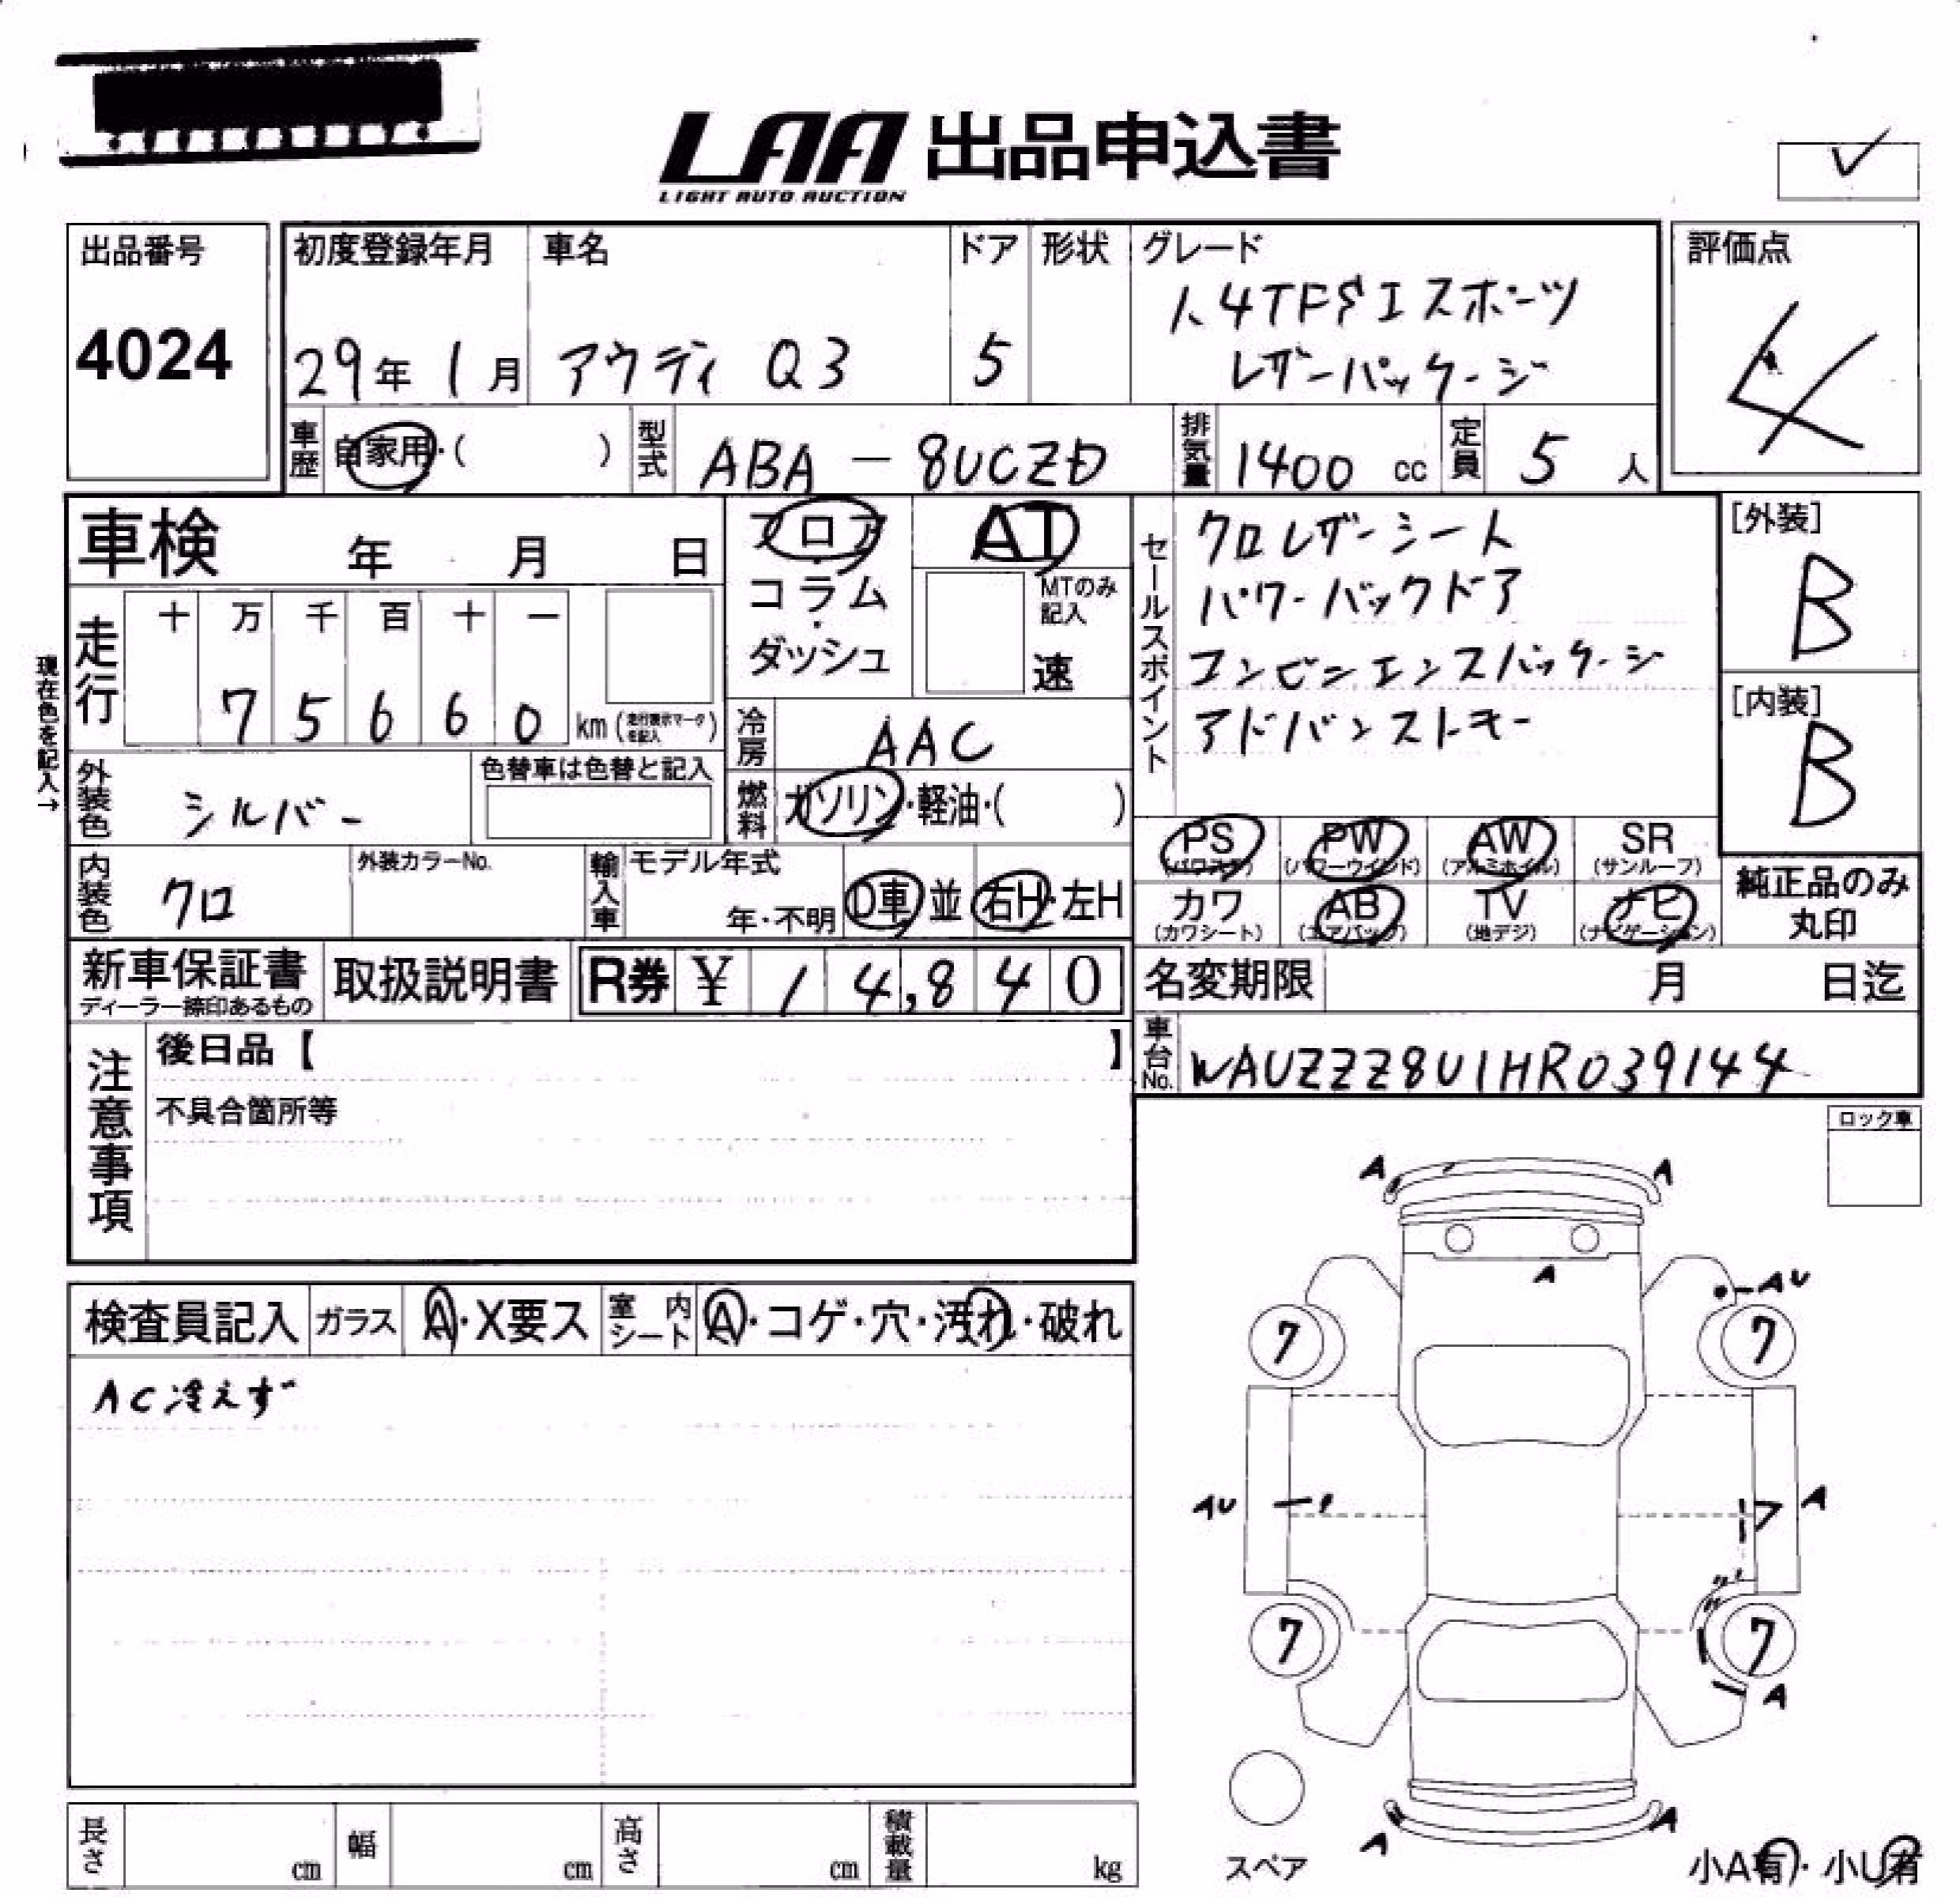 LAA 出品申込書
LIGHT AUTO AUCTION
出品番号
4024
初度登録年月
29年 1月
車名
アウディ Q3
ドア
5
形状
グレード
1.4TFSIスポーツ
レザーパッケージ
評価点
4
車歴
自家用・( )
型式
ABA-8UCZD
排気量
1400 cc
定員
5 人
車検 年 月 日
フロア
コラム
・
ダッシュ
AT
MTのみ
記入
速
セールスポイント
クロレザーシート
パワーバックドア
コンビニエンスパッケージ
アドバンストキー
[外装]
B
[内装]
B
現在色を記入→
走行
十 万 千 百 十 一
7 5 6 6 0 km (走行表示マークを記入)
冷房
AAC
外装色
シルバー
色替車は色替と記入
燃料
ガソリン・軽油・( )
PS
(パワステ)
PW
(パワーウインド)
AW
(アルミホイル)
SR
(サンルーフ)
カワ
(カワシート)
AB
(エアバッグ)
TV
(地デジ)
ナビ
(ナビゲーション)
純正品のみ
丸印
内装色
クロ
外装カラーNo.
輸入車
モデル年式
年・不明
D車 並
右H・左H
新車保証書
ディーラー捺印あるもの
取扱説明書
R券 ¥ 14,840
名変期限 月 日迄
車台No.
WAUZZZ8U1HR039144
注意事項
後日品【 】
不具合箇所等
ロック車
検査員記入
ガラス
A・X要ス
室内
シート
A・コゲ・穴・汚れ・破れ
AC冷えず
A A
A
AU
7 7
AU A
7 7
A
A A
スペア
小A有・小U有
長さ cm
幅 cm
高さ cm
積載量 kg